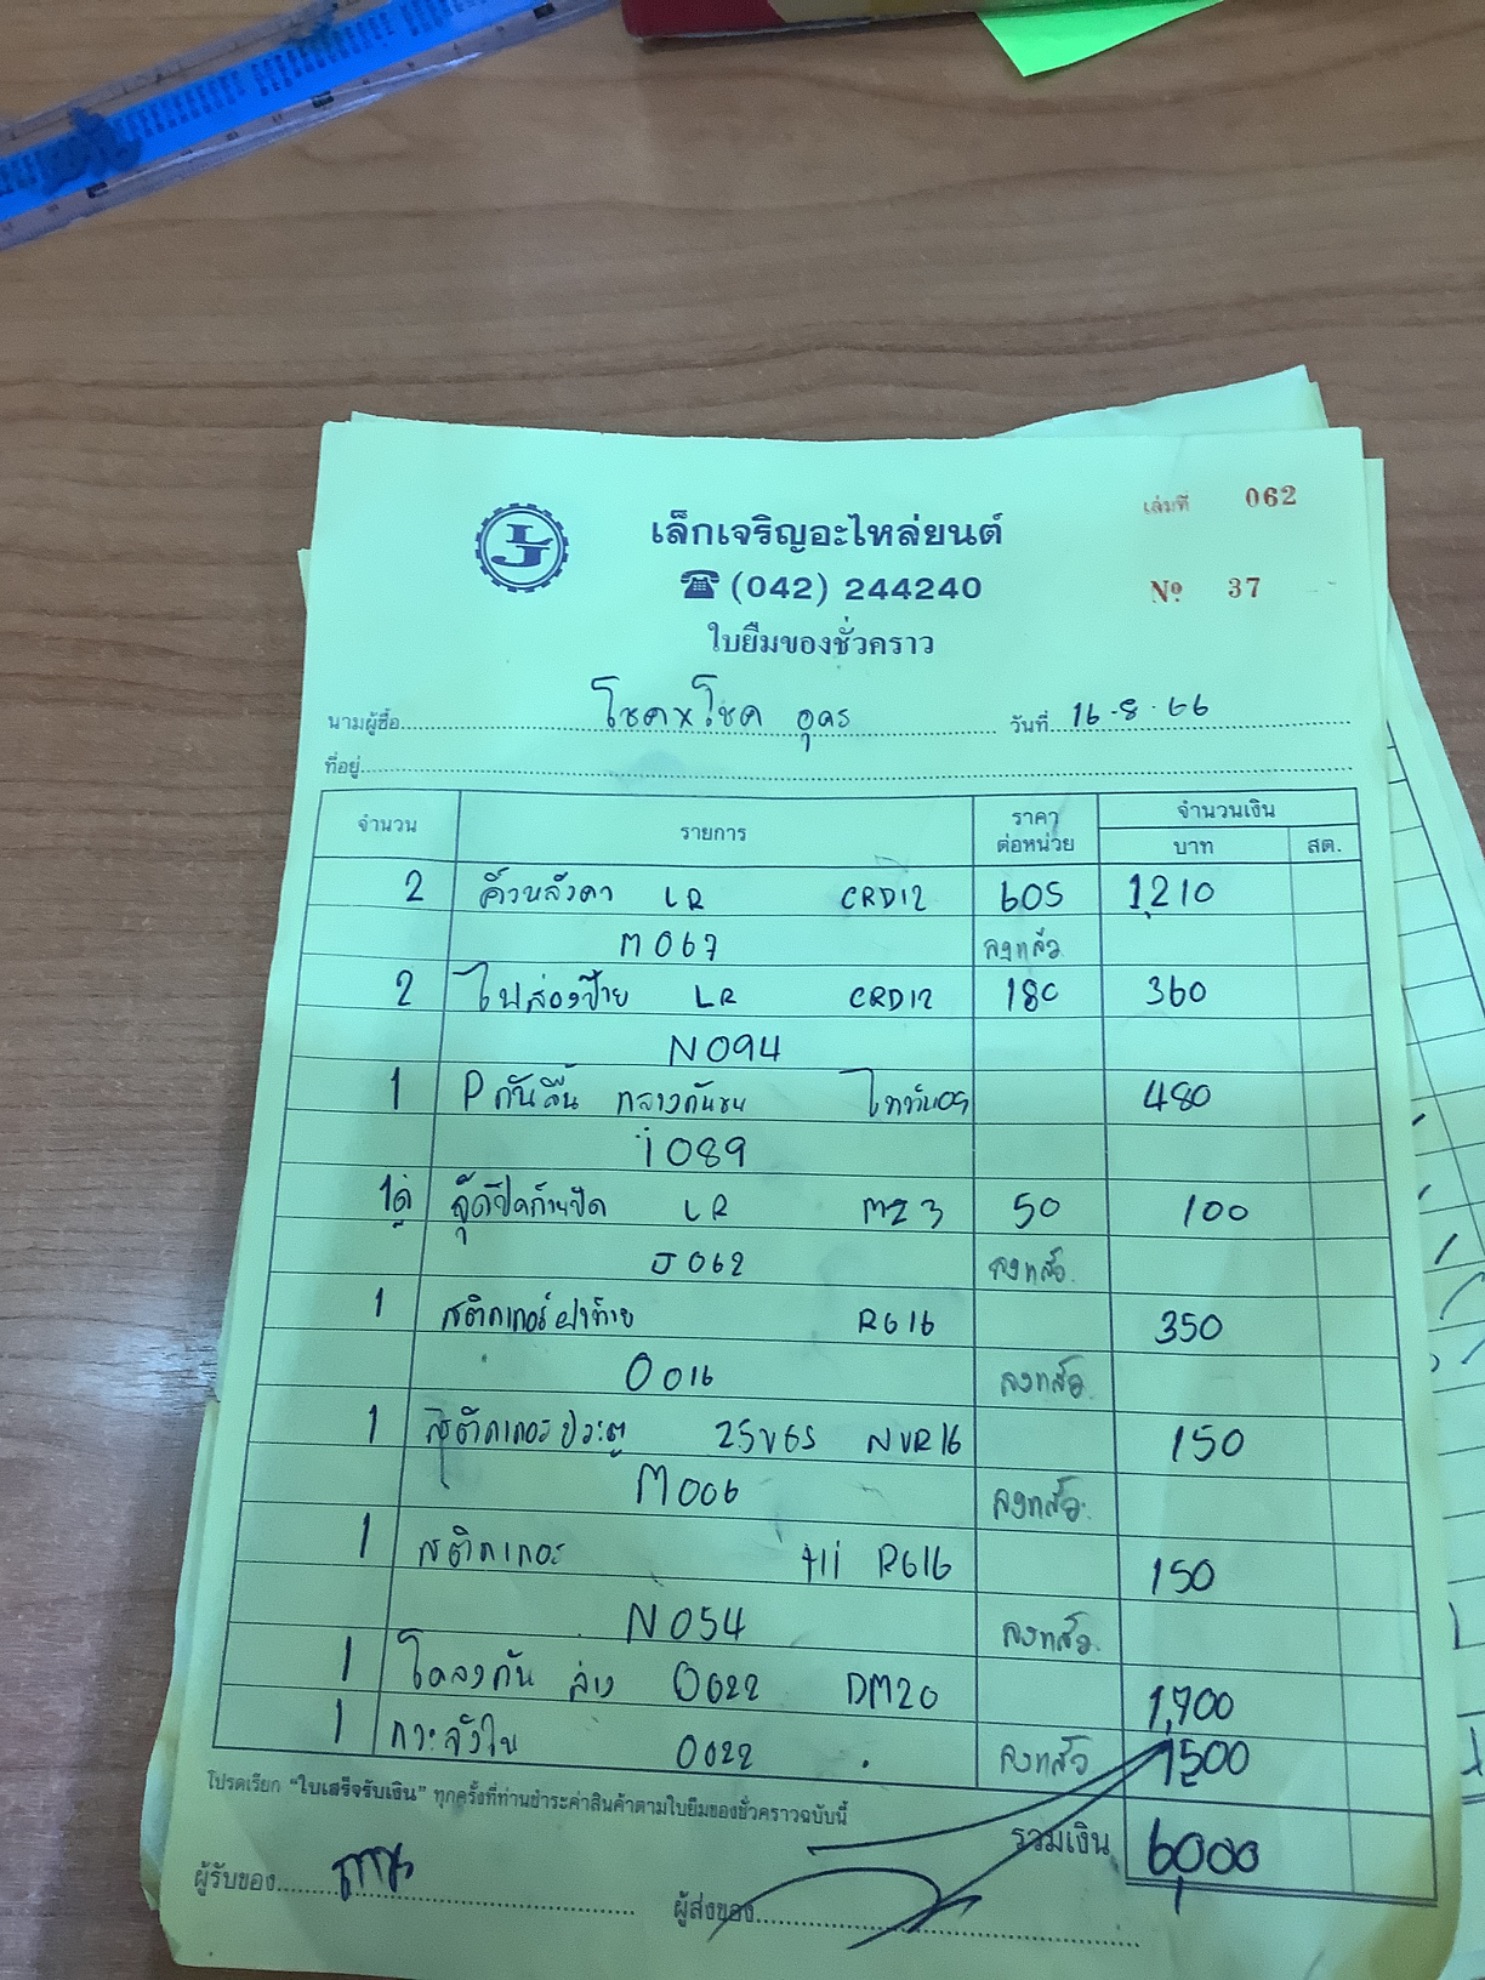 เล่มที่ 062
เล็กเจริญอะไหล่ยนต์
(042) 244240
Nº 37
ใบยืมของชั่วคราว
นามผู้ซื้อ โชคxโชค อุดร วันที่ 16-8-66
ที่อยู่
จำนวน รายการ ราคาต่อหน่วย จำนวนเงิน บาท สต.
2 คิ้วหลังคา LR CRD12 605 1,210
M067 ลงแล้ว
2 ไฟส่องป้าย LR CRD12 180 360
N094
1 Pกันลื่น กลางกันชน 480
i089
1คู่ LR MZ3 50 100
J062 ลงแล้ว
1 สติกเกอร์ฝาท้าย RG16 350
O016 ลงแล้ว
1 สติกเกอร์ประตู 25VGS NVR16 150
M006 ลงแล้ว
1 สติกเกอร์ RG16 150
N054 ลงแล้ว
1 โคลงกัน ล่าง O022 DM20 1,700
1 กระจังใน O022 ลงแล้ว 1,500
โปรดเรียก "ใบเสร็จรับเงิน" ทุกครั้งที่ท่านชำระค่าสินค้าตามใบยืมของชั่วคราวฉบับนี้
รวมเงิน 6,000
ผู้รับของ ผู้ส่งของ